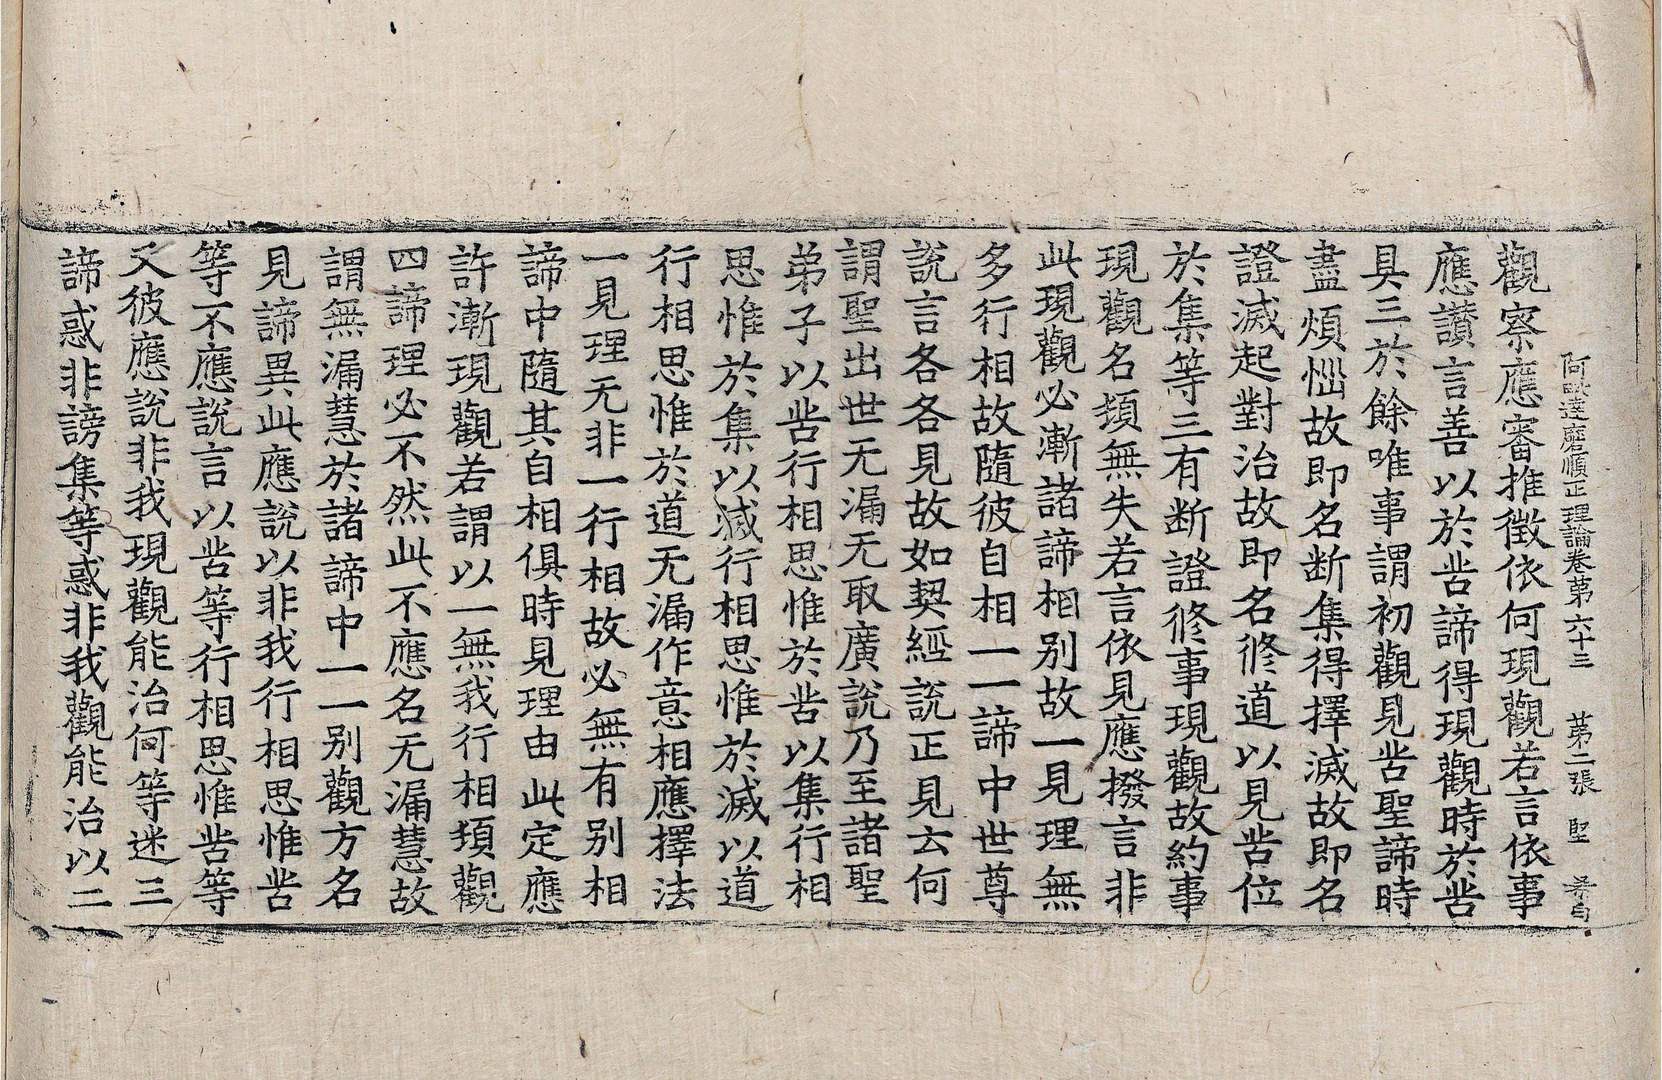 阿毗達磨順正理論卷第六十三　第二張　堅
觀察應審推徵依何現觀若言依事
應讃言善以於苦諦得現觀時於苦
具三於餘唯事謂初觀見苦聖諦時
盡煩惱故即名斷集得擇滅故即名
證滅起對治故即名修道以見苦位
於集等三有斷證修事現觀故約事
現觀名頓無失若言依見應撥言非
此現觀必漸諸諦相別故一見理無
多行相故隨彼自相一一諦中世尊
說言各各見故如契經說正見云何
謂聖出世无漏无取廣說乃至諸聖
弟子以苦行相思惟於苦以集行相
思惟於集以滅行相思惟於滅以道
行相思惟於道无漏作意相應擇法
一見理无非一行相故必無有別相
諦中隨其自相俱時見理由此定應
許漸現觀若謂以一無我行相頓觀
四諦理必不然此不應名无漏慧故
謂無漏慧於諸諦中一一別觀方名
見諦異此應說以非我行相思惟苦
等不應說言以苦等行相思惟苦等
又彼應說非我現觀能治何等迷三
諦惑非謗集等惑非我觀能治以二